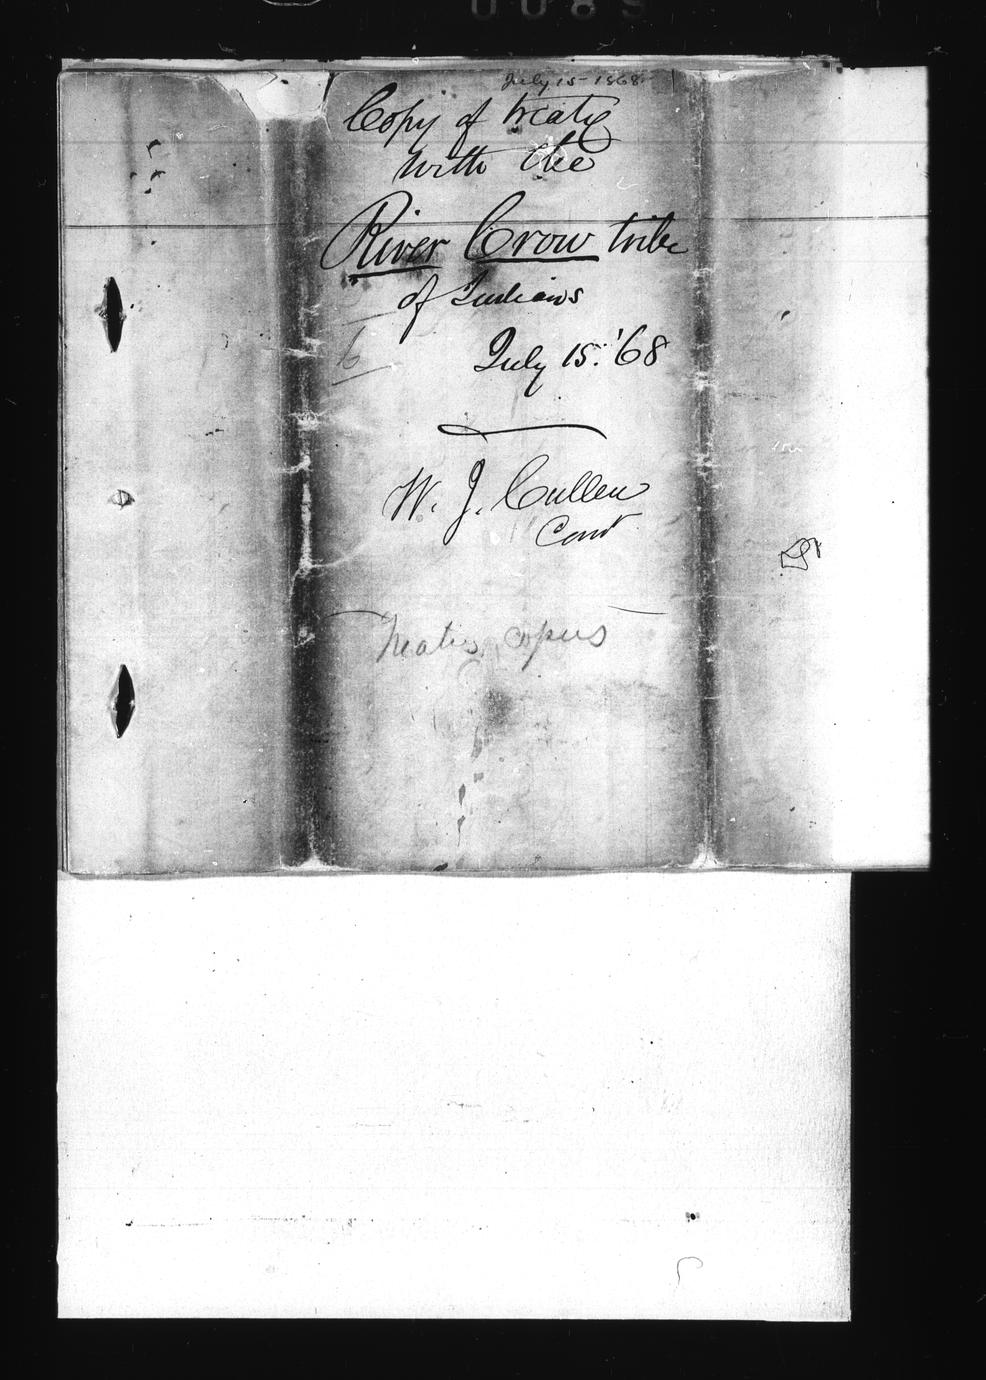 0089
July 15-1868
Copy of treaty
with the
River Crow tribe
of Indians
6
July 15. '68
W. J. Cullen
Com